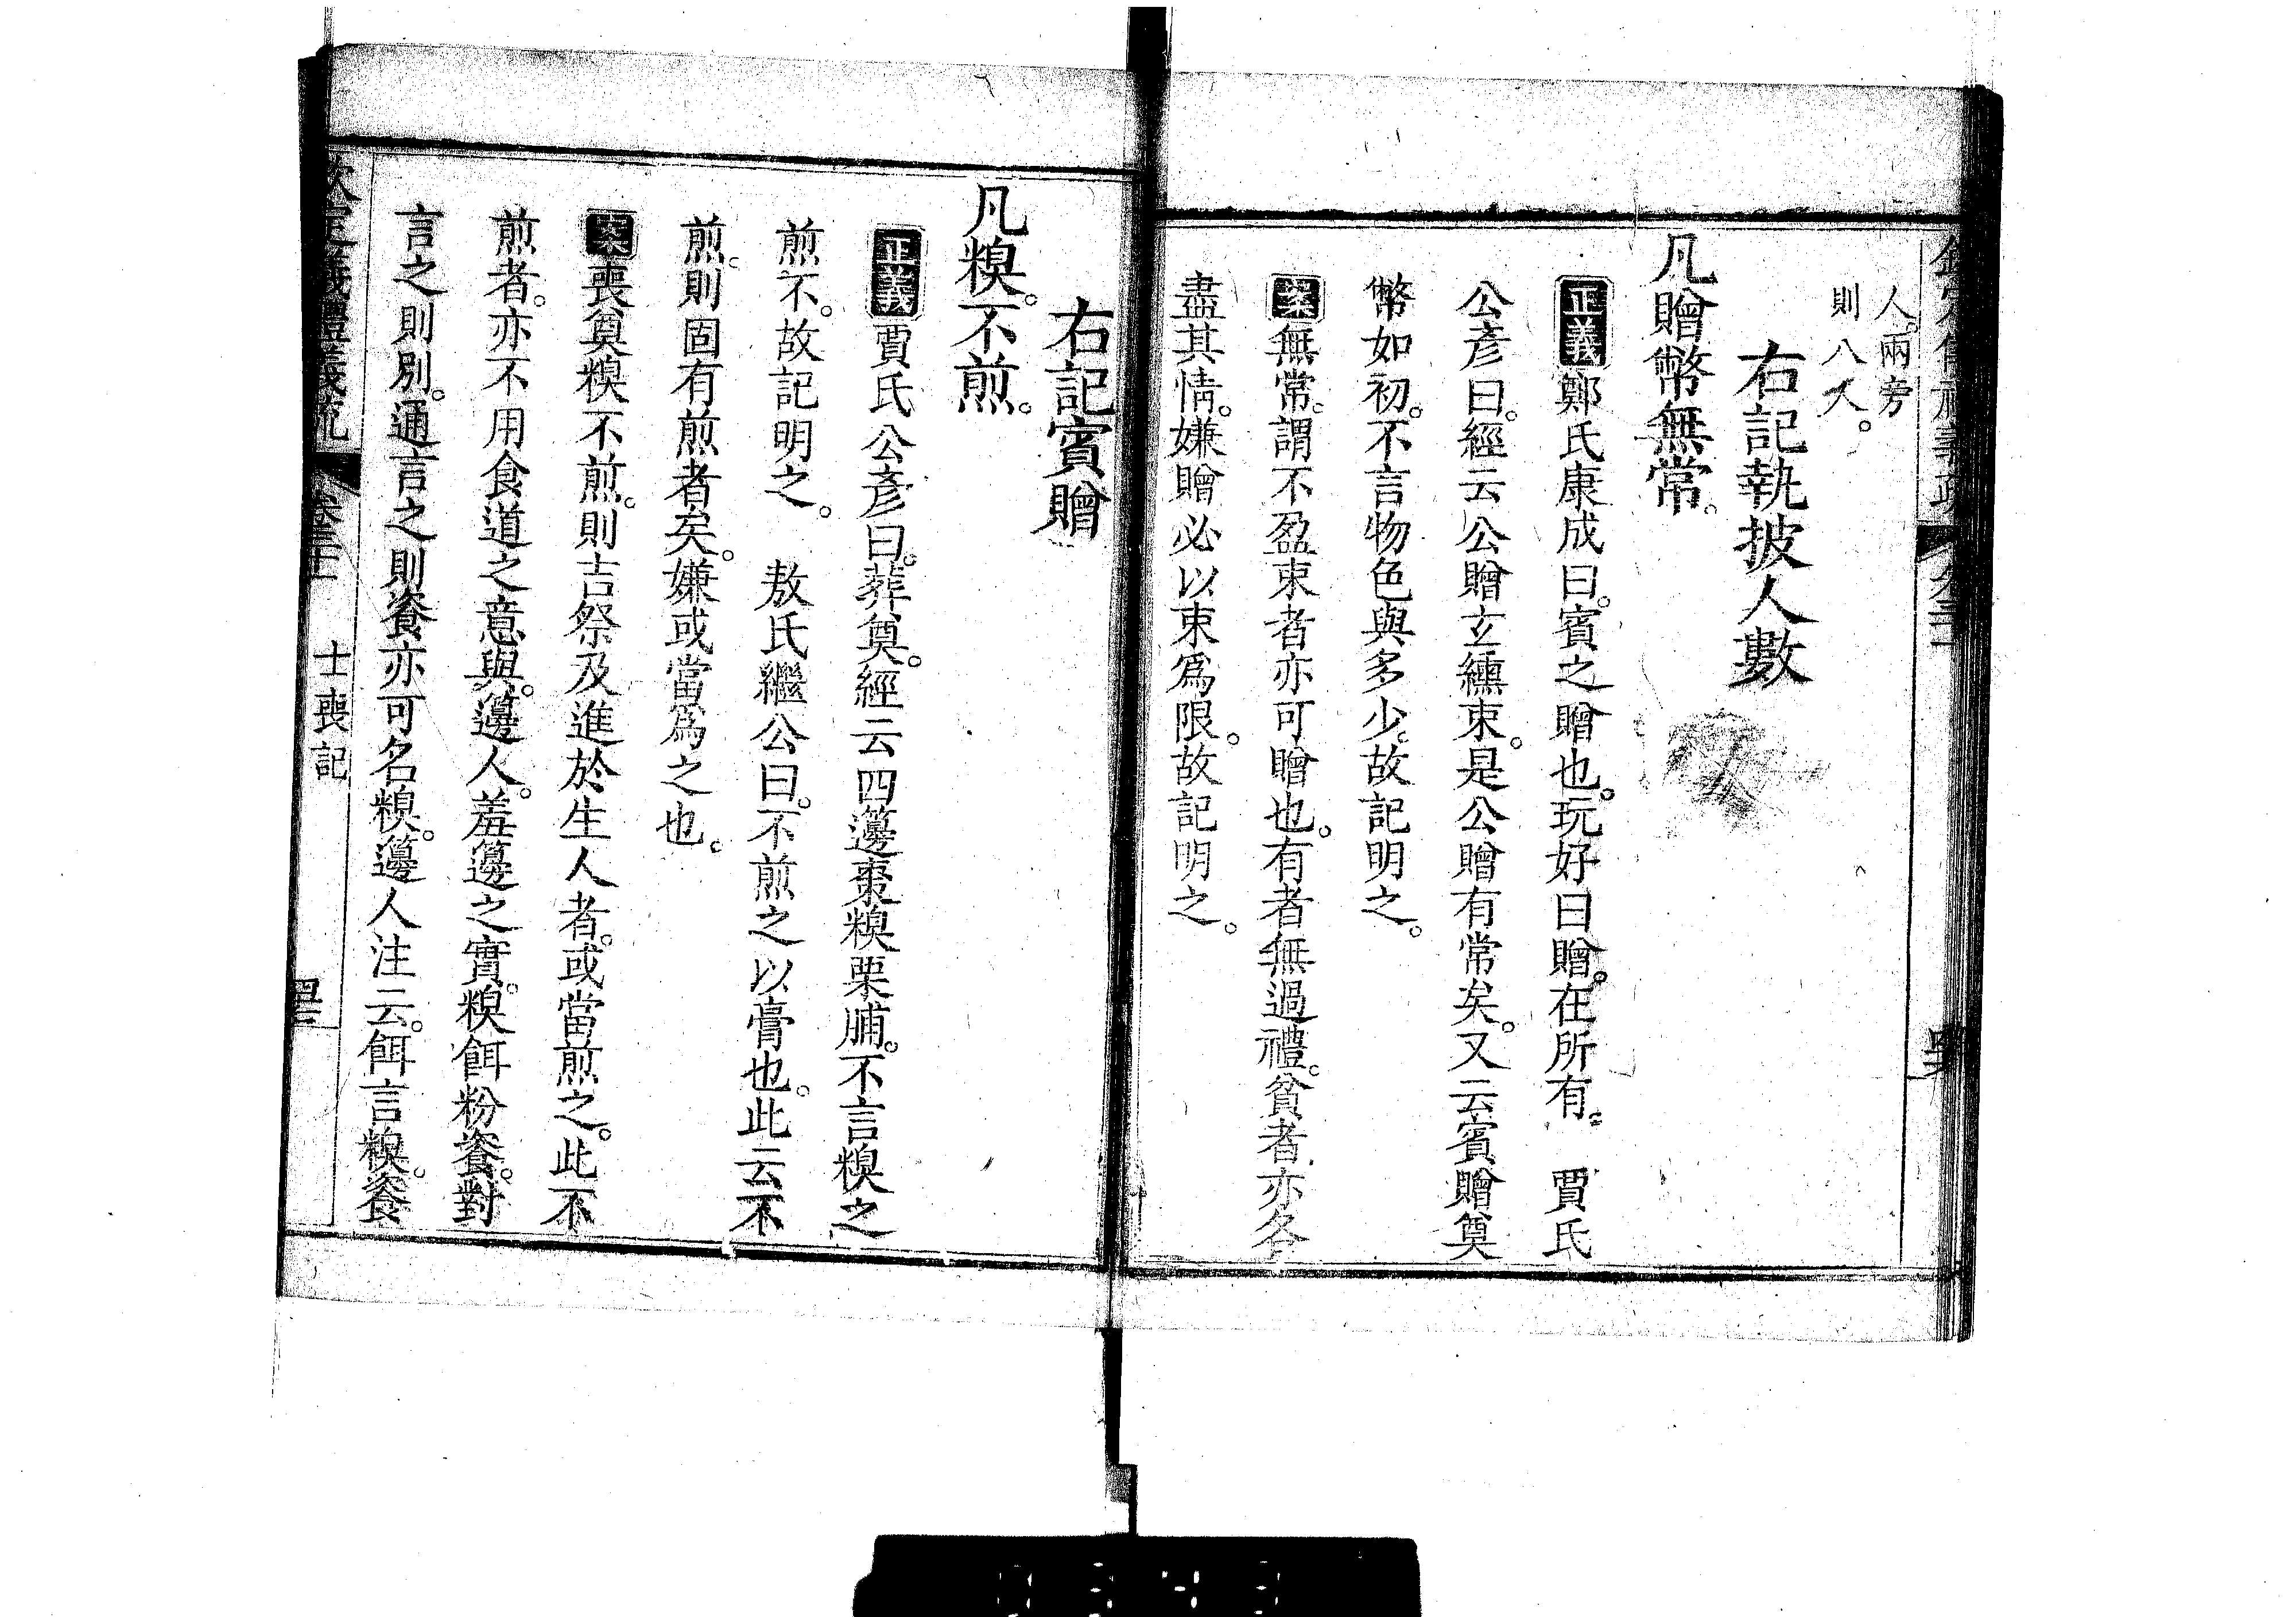 人兩旁
則八人。
右記執披人數
凡贈幣無常。
正義鄭氏康成曰。賓之贈也。玩好曰贈。在所有。 賈氏
公彥曰。經云公贈玄纁束。是公贈有常矣。又云賓贈奠
幣如初。不言物色與多少。故記明之。
案無常。謂不盈束者亦可贈也。有者無過禮。貧者亦各
盡其情。嫌贈必以束爲限。故記明之。
右記賓贈
凡糗。不煎。
正義賈氏公彥曰。葬奠。經云四籩棗糗栗脯。不言糗之
煎不。故記明之。 敖氏繼公曰。不煎之以膏也。此云不
煎。則固有煎者矣。嫌或當爲之也。
案喪奠糗不煎。則吉祭及進於生人者。或當煎之。此不
煎者。亦不用食道之意與。籩人。羞籩之實。糗餌粉餈。對
言之則別。通言之則餈亦可名糗。籩人注云。餌言糗。餈
欽定儀禮義疏 卷三十 士喪記